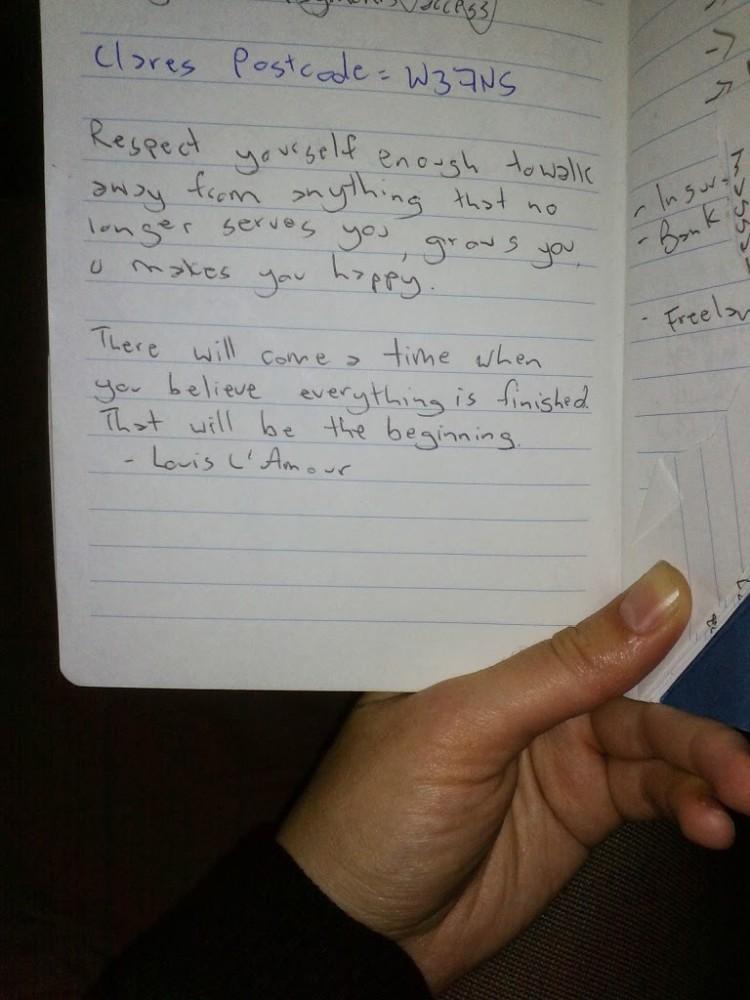 Clares Postcode = W37NS
Respect yourself enough to walk
away from anything that no
longer serves you, grows you,
u makes you happy.
There will come a time when
you believe everything is finished.
That will be the beginning.
- Louis L'Amour
- Insur
- Bank
- Freelan